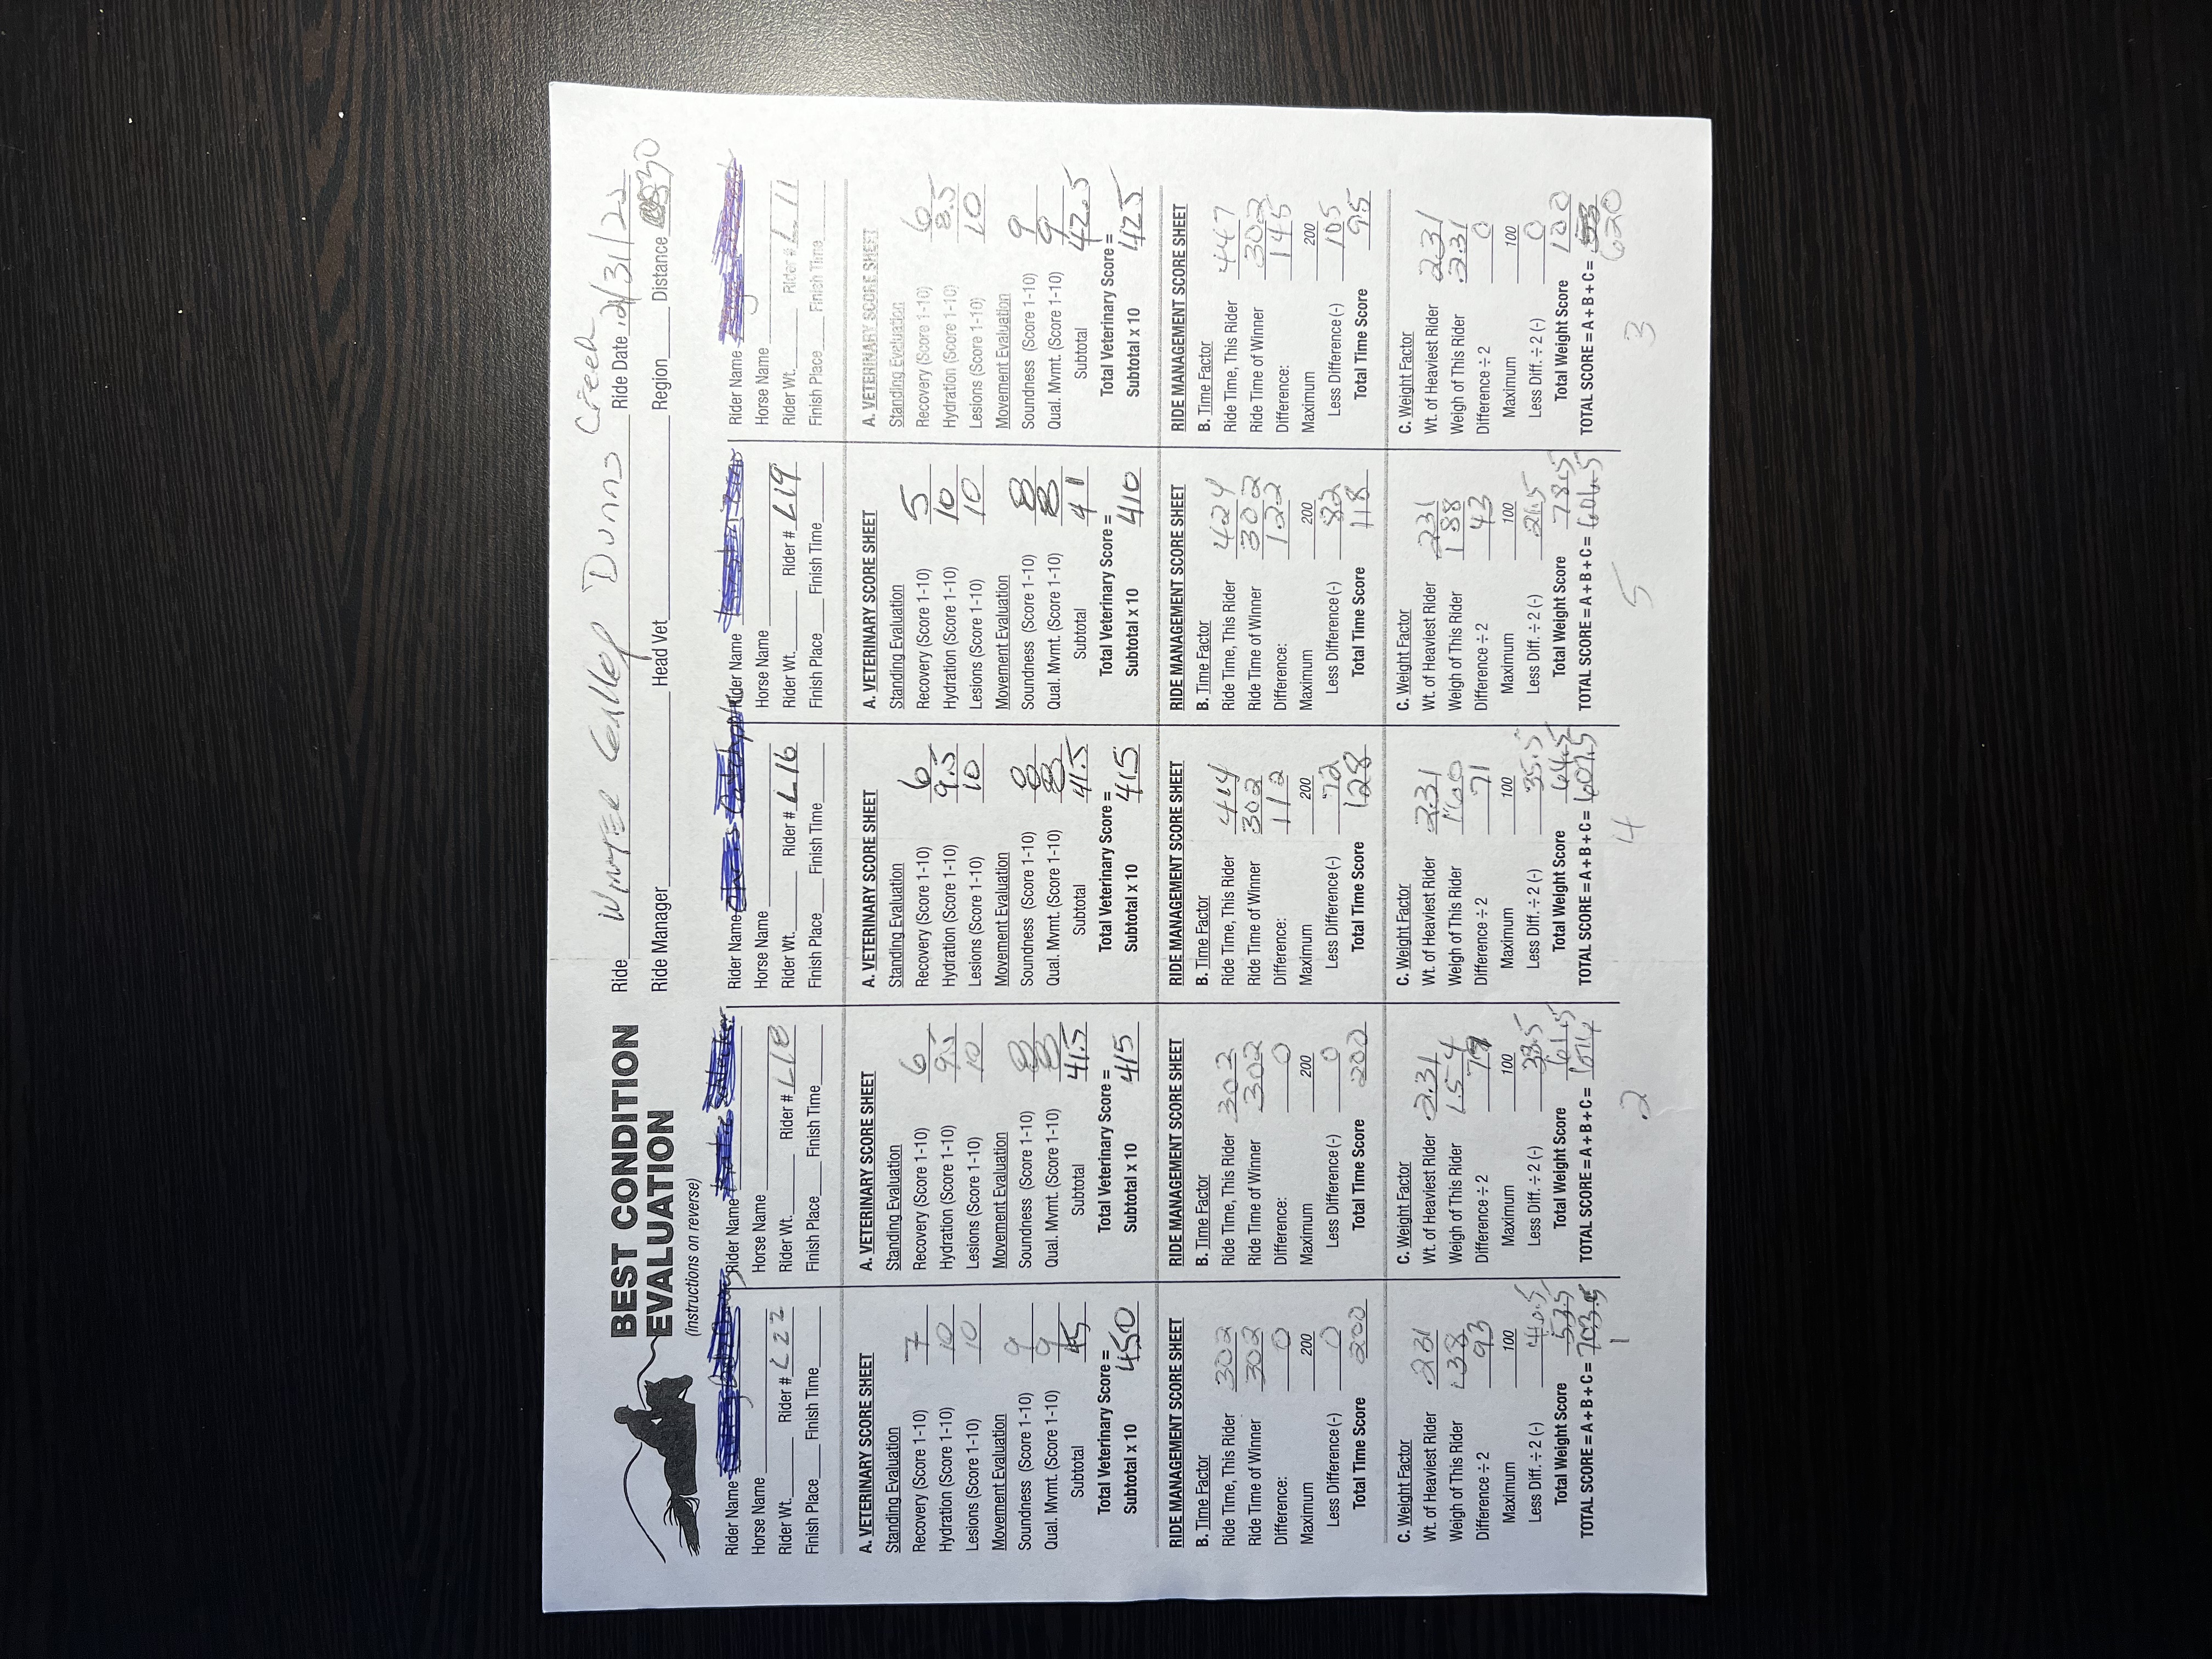 BEST CONDITION
EVALUATION
(instructions on reverse)
Ride WINTER Dunns Creek Ride Date 12/31/22
Ride Manager Head Vet Region Distance 30
Rider Name
Horse Name
Rider Wt. Rider # L22
Finish Place Finish Time
A. VETERINARY SCORE SHEET
Standing Evaluation
Recovery (Score 1-10) 7
Hydration (Score 1-10) 10
Lesions (Score 1-10) 10
Movement Evaluation
Soundness (Score 1-10) 9
Qual. Mvmt. (Score 1-10) 9
Subtotal 45
Total Veterinary Score =
Subtotal x 10 450
RIDE MANAGEMENT SCORE SHEET
B. Time Factor
Ride Time, This Rider 302
Ride Time of Winner 302
Difference: 0
Maximum 200
Less Difference (-) 0
Total Time Score 200
C. Weight Factor
Wt. of Heaviest Rider 231
Weigh of This Rider 138
Difference ÷ 2 93
Maximum 100
Less Diff. ÷ 2 (-) 46.5
Total Weight Score 53.5
TOTAL SCORE = A + B + C = 703.5
1
Rider Name
Horse Name
Rider Wt. Rider # L18
Finish Place Finish Time
A. VETERINARY SCORE SHEET
Standing Evaluation
Recovery (Score 1-10) 6
Hydration (Score 1-10) 9.5
Lesions (Score 1-10) 10
Movement Evaluation
Soundness (Score 1-10) 8
Qual. Mvmt. (Score 1-10) 8
Subtotal 41.5
Total Veterinary Score =
Subtotal x 10 415
RIDE MANAGEMENT SCORE SHEET
B. Time Factor
Ride Time, This Rider 302
Ride Time of Winner 302
Difference: 0
Maximum 200
Less Difference (-) 0
Total Time Score 200
C. Weight Factor
Wt. of Heaviest Rider 231
Weigh of This Rider 154
Difference ÷ 2 77
Maximum 100
Less Diff. ÷ 2 (-) 38.5
Total Weight Score 61.5
TOTAL SCORE = A + B + C =
2
Rider Name
Horse Name
Rider Wt. Rider # L16
Finish Place Finish Time
A. VETERINARY SCORE SHEET
Standing Evaluation
Recovery (Score 1-10) 6
Hydration (Score 1-10) 9.5
Lesions (Score 1-10) 10
Movement Evaluation
Soundness (Score 1-10) 8
Qual. Mvmt. (Score 1-10) 8
Subtotal 41.5
Total Veterinary Score =
Subtotal x 10 415
RIDE MANAGEMENT SCORE SHEET
B. Time Factor
Ride Time, This Rider 414
Ride Time of Winner 302
Difference: 112
Maximum 200
Less Difference (-) 72
Total Time Score 128
C. Weight Factor
Wt. of Heaviest Rider 231
Weigh of This Rider 160
Difference ÷ 2 71
Maximum 100
Less Diff. ÷ 2 (-) 35.5
Total Weight Score 64.5
TOTAL SCORE = A + B + C = 607.5
4
Rider Name
Horse Name
Rider Wt. Rider # L19
Finish Place Finish Time
A. VETERINARY SCORE SHEET
Standing Evaluation
Recovery (Score 1-10) 5
Hydration (Score 1-10) 10
Lesions (Score 1-10) 10
Movement Evaluation
Soundness (Score 1-10) 8
Qual. Mvmt. (Score 1-10) 8
Subtotal 41
Total Veterinary Score =
Subtotal x 10 410
RIDE MANAGEMENT SCORE SHEET
B. Time Factor
Ride Time, This Rider 424
Ride Time of Winner 302
Difference: 122
Maximum 200
Less Difference (-) 82
Total Time Score 118
C. Weight Factor
Wt. of Heaviest Rider 231
Weigh of This Rider 188
Difference ÷ 2 43
Maximum 100
Less Diff. ÷ 2 (-) 21.5
Total Weight Score 78.5
TOTAL SCORE = A + B + C = 606.5
5
Rider Name
Horse Name
Rider Wt. Rider # L 11
Finish Place Finish Time
A. VETERINARY SCORE SHEET
Standing Evaluation
Recovery (Score 1-10) 6
Hydration (Score 1-10) 8.5
Lesions (Score 1-10) 10
Movement Evaluation
Soundness (Score 1-10) 9
Qual. Mvmt. (Score 1-10) 9
Subtotal 42.5
Total Veterinary Score =
Subtotal x 10 425
RIDE MANAGEMENT SCORE SHEET
B. Time Factor
Ride Time, This Rider 447
Ride Time of Winner 302
Difference: 145
Maximum 200
Less Difference (-) 105
Total Time Score 95
C. Weight Factor
Wt. of Heaviest Rider 231
Weigh of This Rider 231
Difference ÷ 2 0
Maximum 100
Less Diff. ÷ 2 (-) 0
Total Weight Score 100
TOTAL SCORE = A + B + C =
620
3